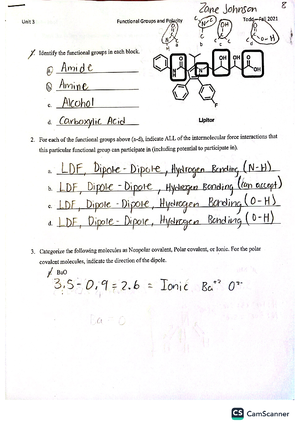 Zane Johnson 8
Unit 3 Functional Groups and Polarity Todd—Fall 2021
1. Identify the functional groups in each block.
a. Amide
b. Amine
c. Alcohol
d. Carboxylic Acid
Lipitor
2. For each of the functional groups above (a-d), indicate ALL of the intermolecular force interactions that
this particular functional group can participate in (including potential to participate in).
a. LDF, Dipole-Dipole, Hydrogen Bonding (N-H)
b. LDF, Dipole-Dipole, Hydrogen Bonding (can accept)
c. LDF, Dipole-Dipole, Hydrogen Bonding (O-H)
d. LDF, Dipole-Dipole, Hydrogen Bonding (O-H)
3. Categorize the following molecules as Nonpolar covalent, Polar covalent, or Ionic. For the polar
covalent molecules, indicate the direction of the dipole.
BaO
3.5 - 0.9 = 2.6 = Ionic Ba+2 O2-
CS CamScanner